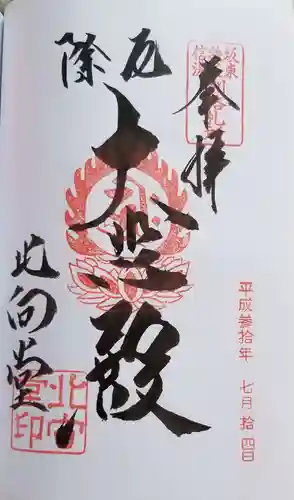 奉拝
平成參拾年 七月拾四日
厄除
大悲殿
北向堂
北向
堂印
坂東